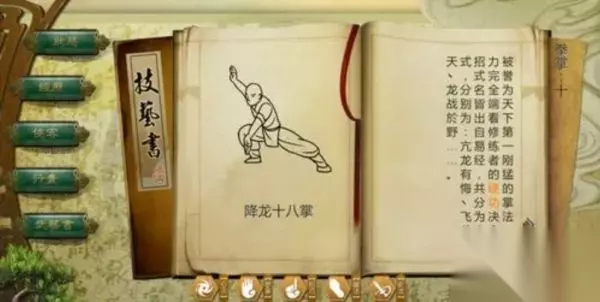 侠客
技藝書
降龙十八掌
拳掌:十
被誉为天下第一刚猛的掌法
力完全端看修练者的硬功决
招式名皆出自易经,共分为
式,分别为:亢龙有悔、飞
天、龙战於野……